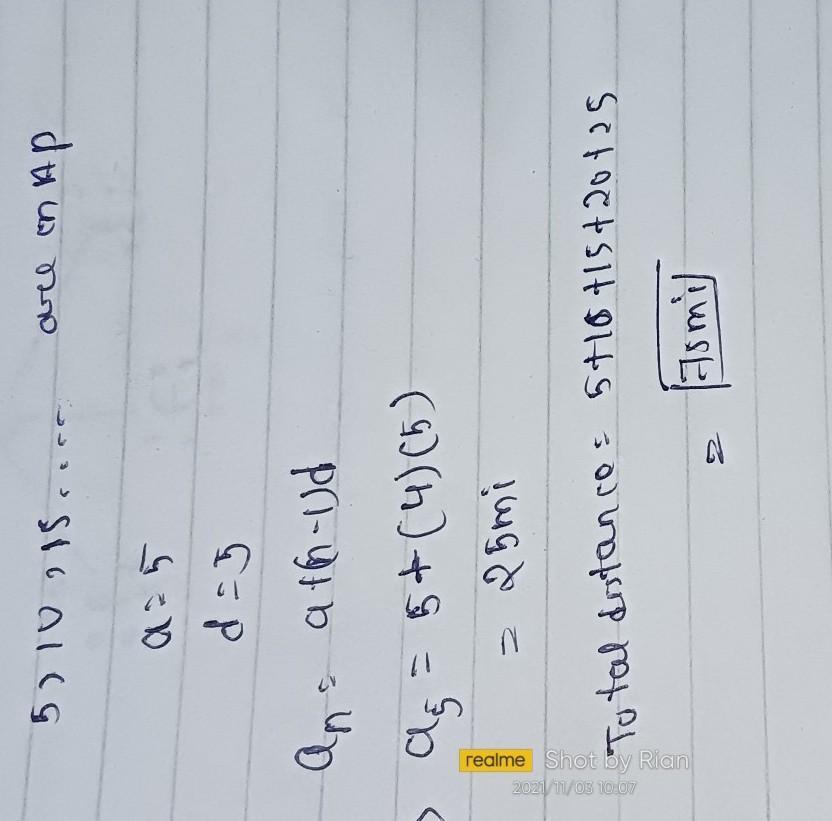 5, 10, 15..... are in AP
a = 5
d = 5
an = a+(n-1)d
a5 = 5+(4)(5)
= 25mi
Total distance = 5+10+15+20+25
= 75mi
realme Shot by Rian
2021/11/03 10:07